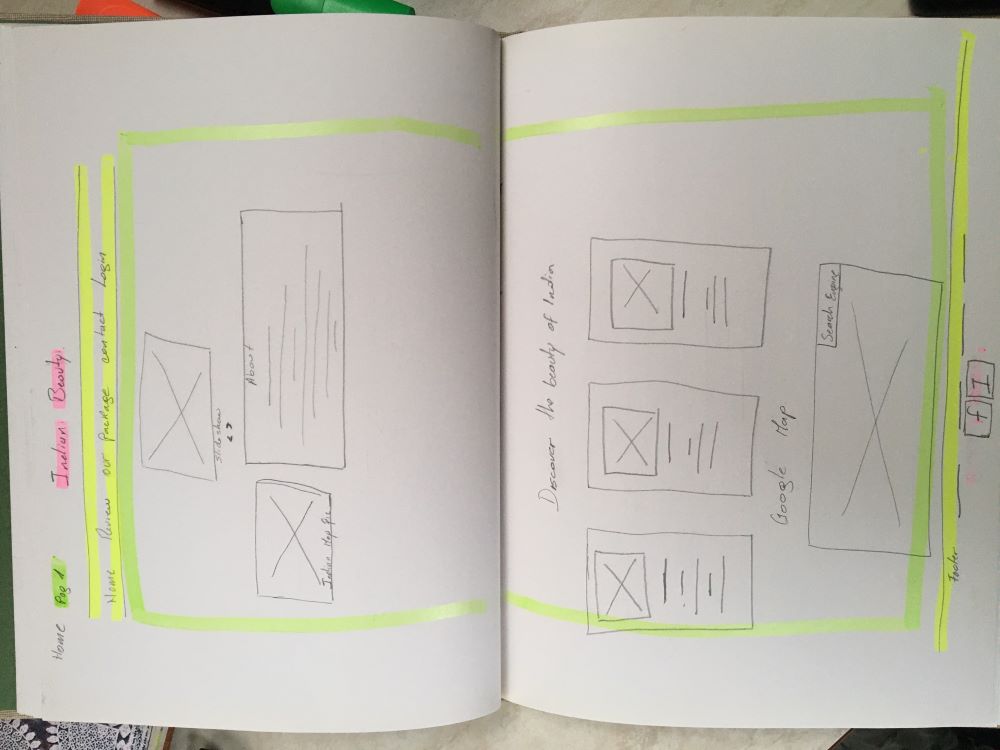 Home Pag 1 Indian Beauty.
Home Review our package contact Login
Slideshow
< >
About
Indian Map Pic
Discover the beauty of India
Google Map
Search Engine
Footer
f I